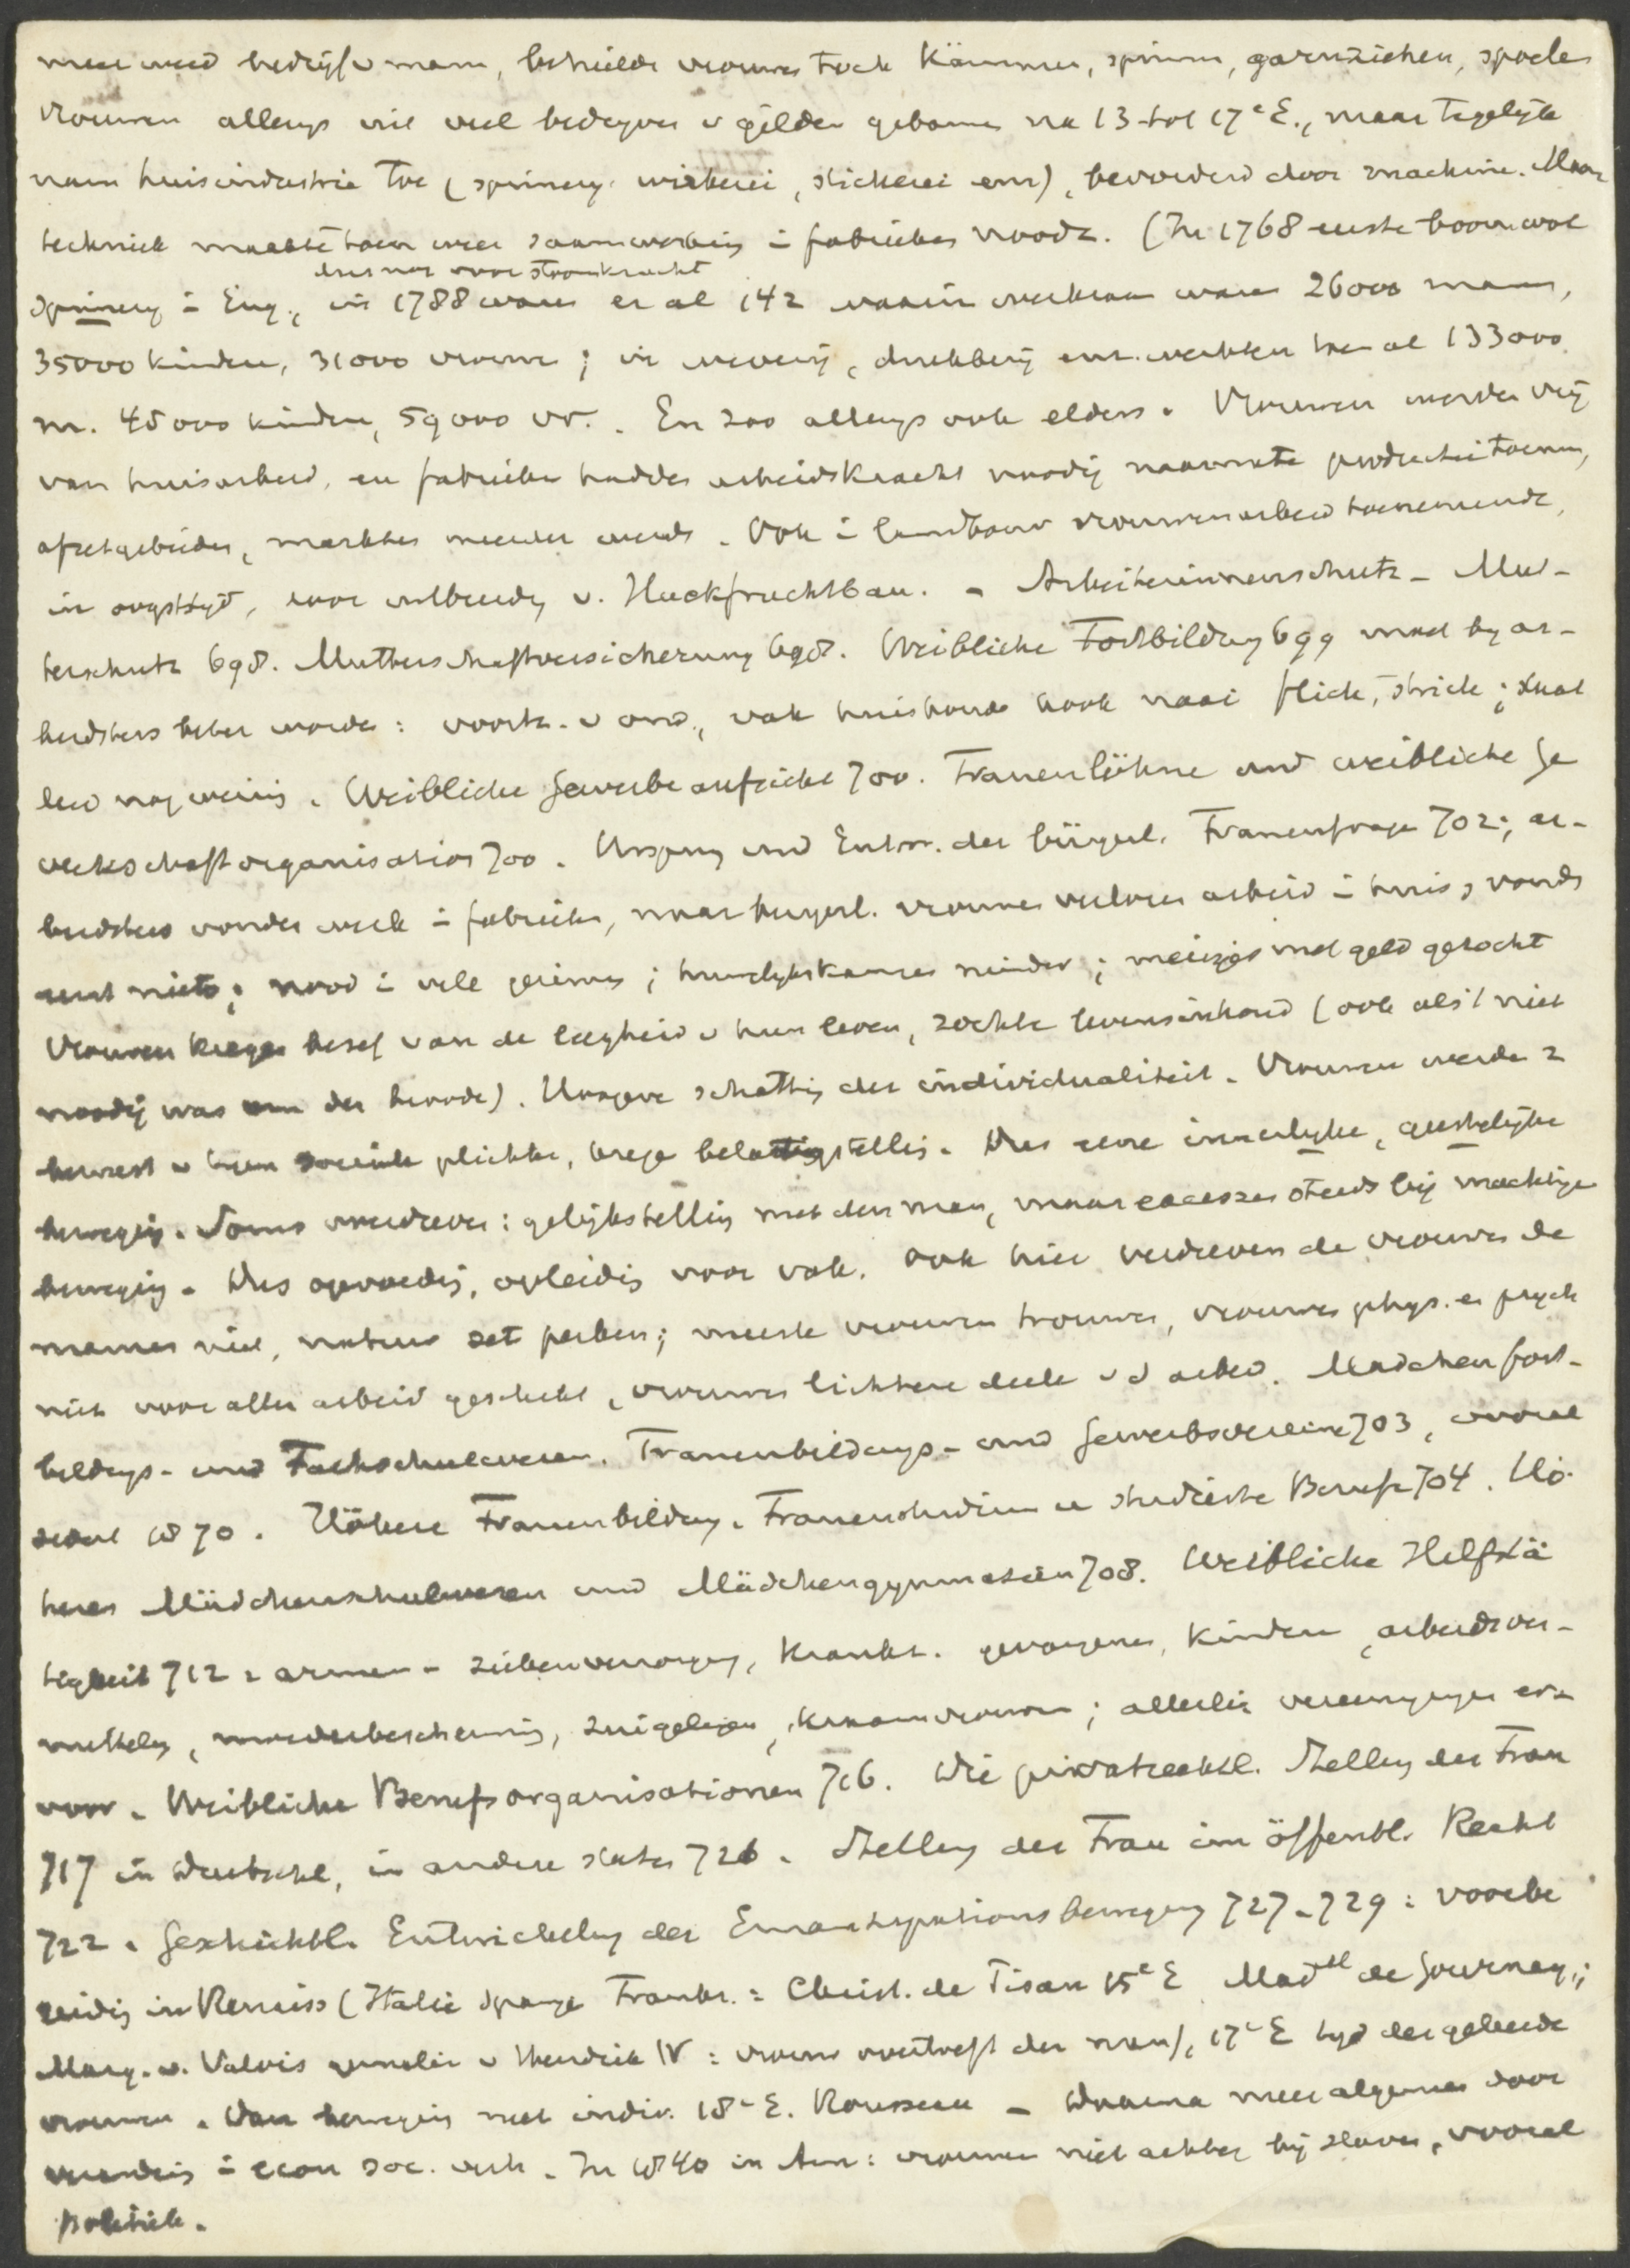 meer werd bedrijf v mann, behielden vrouwen toch Kämmen, spinnen, garnziehen, spoelen
Vrouwen allengs uit veel bedrijven v gilden gebannen na 13 tot 17e E., maar tegelijk
nam huisindustrie toe (spinnerij, wirkerei, stickerei enz), bevorderd door machine. Maar
techniek maakte toen weer saamwerking i fabrieken noodz. (In 1768 eerste boomwol
spinnerij i Eng., in 1788 waren er al 142 waarin werkzaam waren 26000 mann,
dus nog voor stoomkracht
35000 kinderen, 31000 vrouwen; in weverij, drukkerij enz. werkten toen al 133000
m. 45000 kinderen, 59000 vr. . En zoo allengs ook elders. Vrouwen werden vrij
van huisarbeid, en fabrieken hadden arbeidskracht noodig naarmate productie toenam,
afzetgebieden, markten meerder werden. Ook i landbouw vrouwenarbeid toenemende,
in oogsttijd, voor uitbreidg v. Hackfruchtbau. - Arbeiterinnenschutz - Mut-
terschutz 698. Mutterschaftversicherung 698. Weibliche Fortbildung 699 moet by ar-
beidsters beter worden: voortz. v ond., vak huishoud kook naai flick, strick; staat
deed nog weinig. Weibliche Gewerbeaufsicht 700. Frauenlöhne und weibliche Ge
werkschaftorganisation 700. Ursprung und Entw. der bürgerl. Frauenfrage 702; ar-
beidsters vonden werk i fabrieken, maar burgerl. vrouwen verloren arbeid i huis, vonden
eerst niets; nood i vele gezinnen; huwelijkskansen minder; meisjes met geld gezocht
Vrouwen kregen besef van de leegheid v hun leven, zochten levensinhoud (ook als 't niet
noodig was om den broode). Hoogere schatting der individualiteit. Vrouwen werden z
bewust v hun sociale plichten, kregen belangstelling. Dus eene innerlijke, geestelijke
beweging. Soms overdreven: gelijkstelling met den man, maar excessen steeds bij machtige
beweging. Dus opvoeding, opleiding voor vak. Ook hier verdreven de vrouwen de
mannen niet, natuur zet perken; meeste vrouwen trouwen, vrouwen phys. en psych
niet voor allen arbeid geschikt, vrouwen lichtere deele v d arbeid. Mädchenfort-
bildungs- und Fachschulwesen. Frauenbildungs- und Gewerbsvereine 703, vooral
sedert 1870. Höhere Frauenbildung. Frauenstudium u studierte Berufe 704. Hö-
heres Mädchenschulwesen und Mädchengymnasien 708. Weibliche Hilfstä
tigkeit 712: armen- ziekenverzorging, Krankz. gevangenen, Kinderen, arbeidsver-
mitteling, moederbescherming, zuigelingen, kraamvrouwen; allerlei vereenigingen erv
voor. Weibliche Berufsorganisationen 716. Die privatrechtl. Stellung der Frau
717 in Deutschl, in andere staten 726. Stellung der Frau im öffentl. Recht
722. Geschichtl. Entwickelung der Emanzipationsbewegung 727-729: voorbe
reiding in Renaiss (Italië Spanje Frankr.: Christ. de Pisan 15e E Madll de Gournay;
Marg. v. Valois gemalin v Hendrik IV: vrouw overtreft den man), 17e E tijd der geleerde
vrouwen. Dan beweging met indiv. 18e E. Rousseau - Daarna meer algemeen door
verandering i econ soc. verh. In 1840 in Am: vrouwen niet achter bij slaven, vooral
politiek.